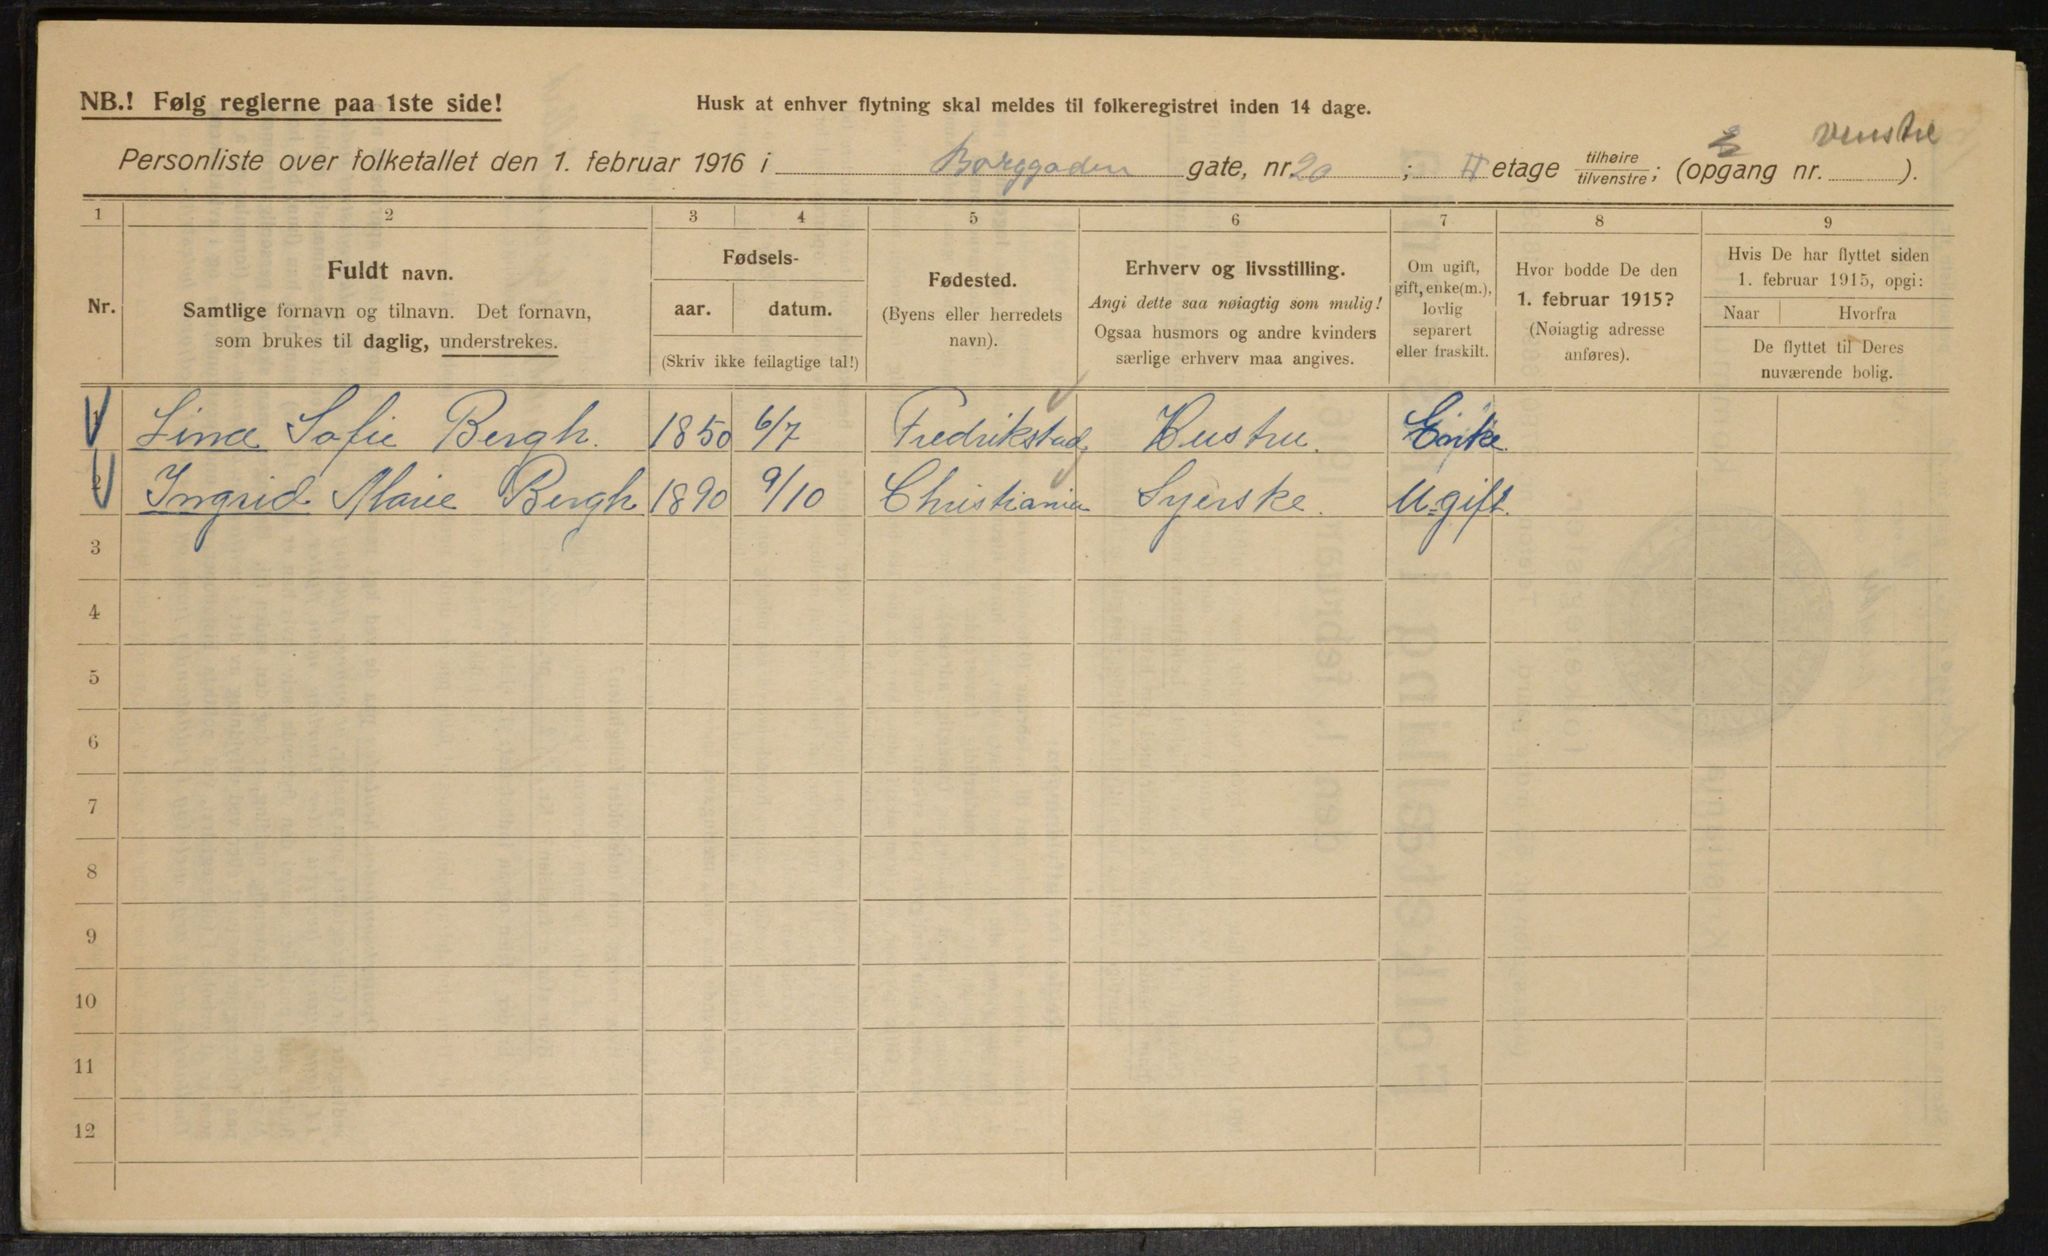 NB.! Følg reglerne paa 1ste side!
Husk at enhver flytning skal meldes til folkeregistret inden 14 dage.
venstre
Personliste over folketallet den 1. februar 1916 i Borggaden gate, nr. 20; II etage tilhøire / tilvenstre; (opgang nr. ).
1 2 3 4 5 6 7 8 9
Nr.
Fuldt navn.
Samtlige fornavn og tilnavn. Det fornavn,
som brukes til daglig, understrekes.
Fødsels-
aar. datum.
(Skriv ikke feilagtige tal!)
Fødested.
(Byens eller herredets
navn).
Erhverv og livsstilling.
Angi dette saa nøiagtig som mulig!
Ogsaa husmors og andre kvinders
særlige erhverv maa angives.
Om ugift,
gift, enke(m.),
lovlig
separert
eller fraskilt.
Hvor bodde De den
1. februar 1915?
(Nøiagtig adresse
anføres).
Hvis De har flyttet siden
1. februar 1915, opgi:
Naar Hvorfra
De flyttet til Deres
nuværende bolig.
1 Lina Sofie Bergh. 1850 6/7 Fredrikstad Hustru. Enke.
2 Ingrid Marie Bergh 1890 9/10 Christiania Syerske. Ugift.
3
4
5
6
7
8
9
10
11
12